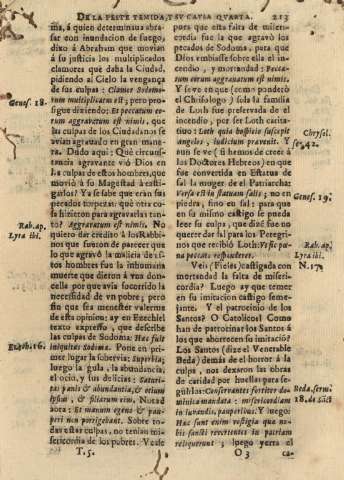 DE LA PESTE TEMIDA, Y SU CAUSA QUARTA. 213
ma, à quien determinaua abrasar
con inundacion de fuego,
dixo à Abraham que movian
à su justicia los multiplicados
clamores que daba la Ciudad,
pidiendo al Cielo la vengança
de sus culpas: Clamor Sodomorum
multiplicatus est; pero prosigue
diziendo: Et peccatum eorum
aggravatum est nimis, que
las culpas de los Ciudadanos se
avian agravado en gran manera.
Dudo aqui: Què circunstancia
agravante viò Dios en
la culpa de estos hombres, que
moviò à su Magestad à castigarlos?
Ya se sabe que eran sus
pecados torpezas: què otra cosa
hizieron para agravarlas tanto?
Aggravatum est nimis. No
quiero dar credito à los Rabinos
que fueron de parecer que
lo que agravò la malicia de estos
hombres fue la inhumana
muerte que dieron à vna donzella
por que avia socorrido la
necesidad de vn pobre; pero
sin que sea menester valerme
de esta opinion; ay en Ezechiel
texto expresso, que describe
las culpas de Sodoma: Hæc fuit
iniquitas Sodomæ. Pone en primer
lugar la sobervia: Superbia;
luego la gula, la abundancia,
el ocio, y sus delicias: Saturitas
panis & abundantia, & otium
ipsius, & filiarum eius. Notad
aora: Et manum egeno & pauperi
non porrigebant. Sobre todas
estas culpas, no tenian misericordia
de los pobres. Veale
T. 5.
Genes. 18.
Rab. ap.
Lyra ibi.
Ezech. 16.
pues que esta falta de misericordia
fue la que agravò los
pecados de Sodoma, para que
Dios embiasse sobre ella el incendio,
y mortandad: Peccatum
eorum aggravatum est nimis.
Y se ve en que (como ponderò
Chrisologo) sola la familia
de Loth fue preservada de el
incendio, por ser Loth caritatiuo:
Loth quia hospitio suscepit
angelos, iudicium praevenit. Y
aun se ve (si hemos de creer à
los Doctores Hebreos) en que
fue convertida en Estatua de
sal la muger de el Patriarcha:
Versa est in statuam salis; no en
piedra, sino en sal: para que
en su mismo castigo se pueda
leer su culpa, que dizen fue no
querer dar sal para los Peregrinos
que recibiò Loth: Vt sic pœna
peccato responderet.
Veis (Fieles) castigada con
mortandad la falta de misericordia?
Luego ay que temer
en su imitacion castigo semejante.
Y el patrocinio de los
Santos? O Catolicos! Como
han de patrocinar los Santos à
los que aborrecen su imitacion?
Los Santos (dize el Venerable
Beda) demàs de el horror à la
culpa, nos dexaron las obras
de caridad por huellas para seguirlos:
Conservantes fortiter dominica
mandata: misericordiam
in lurandis, pauperibus. Y luego:
Hæc sunt enim vestigia quæ nobis
sancti revertentes in patriam
reliquerunt; luego yerra el
O 3 ca-
Chrysol.
Genes. 19.
Rab. ap.
Lyra ibi.
N. 17.
Beda, serm.
18. de Sact